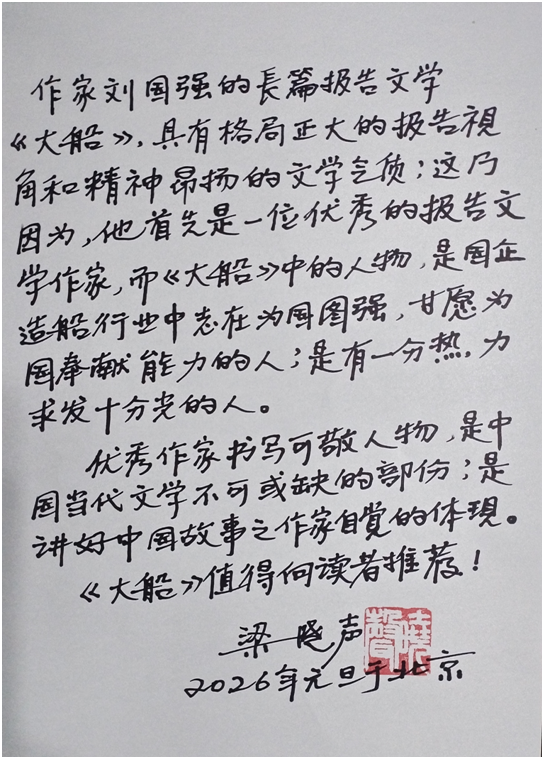 作家刘国强的長篇报告文学
《大船》，具有格局正大的报告視
角和精神昂扬的文学气质；这乃
因为，他首先是一位优秀的报告文
学作家，而《大船》中的人物，是国企
造船行业中志在为国图强，甘愿为
国奉献能力的人；是有一分热，力
求发十分光的人。
优秀作家书写可敬人物，是中
国当代文学不可或缺的部份；是
讲好中国故事之作家自觉的体現。
《大船》值得向读者推荐！
梁晓声
2026年元旦于北京